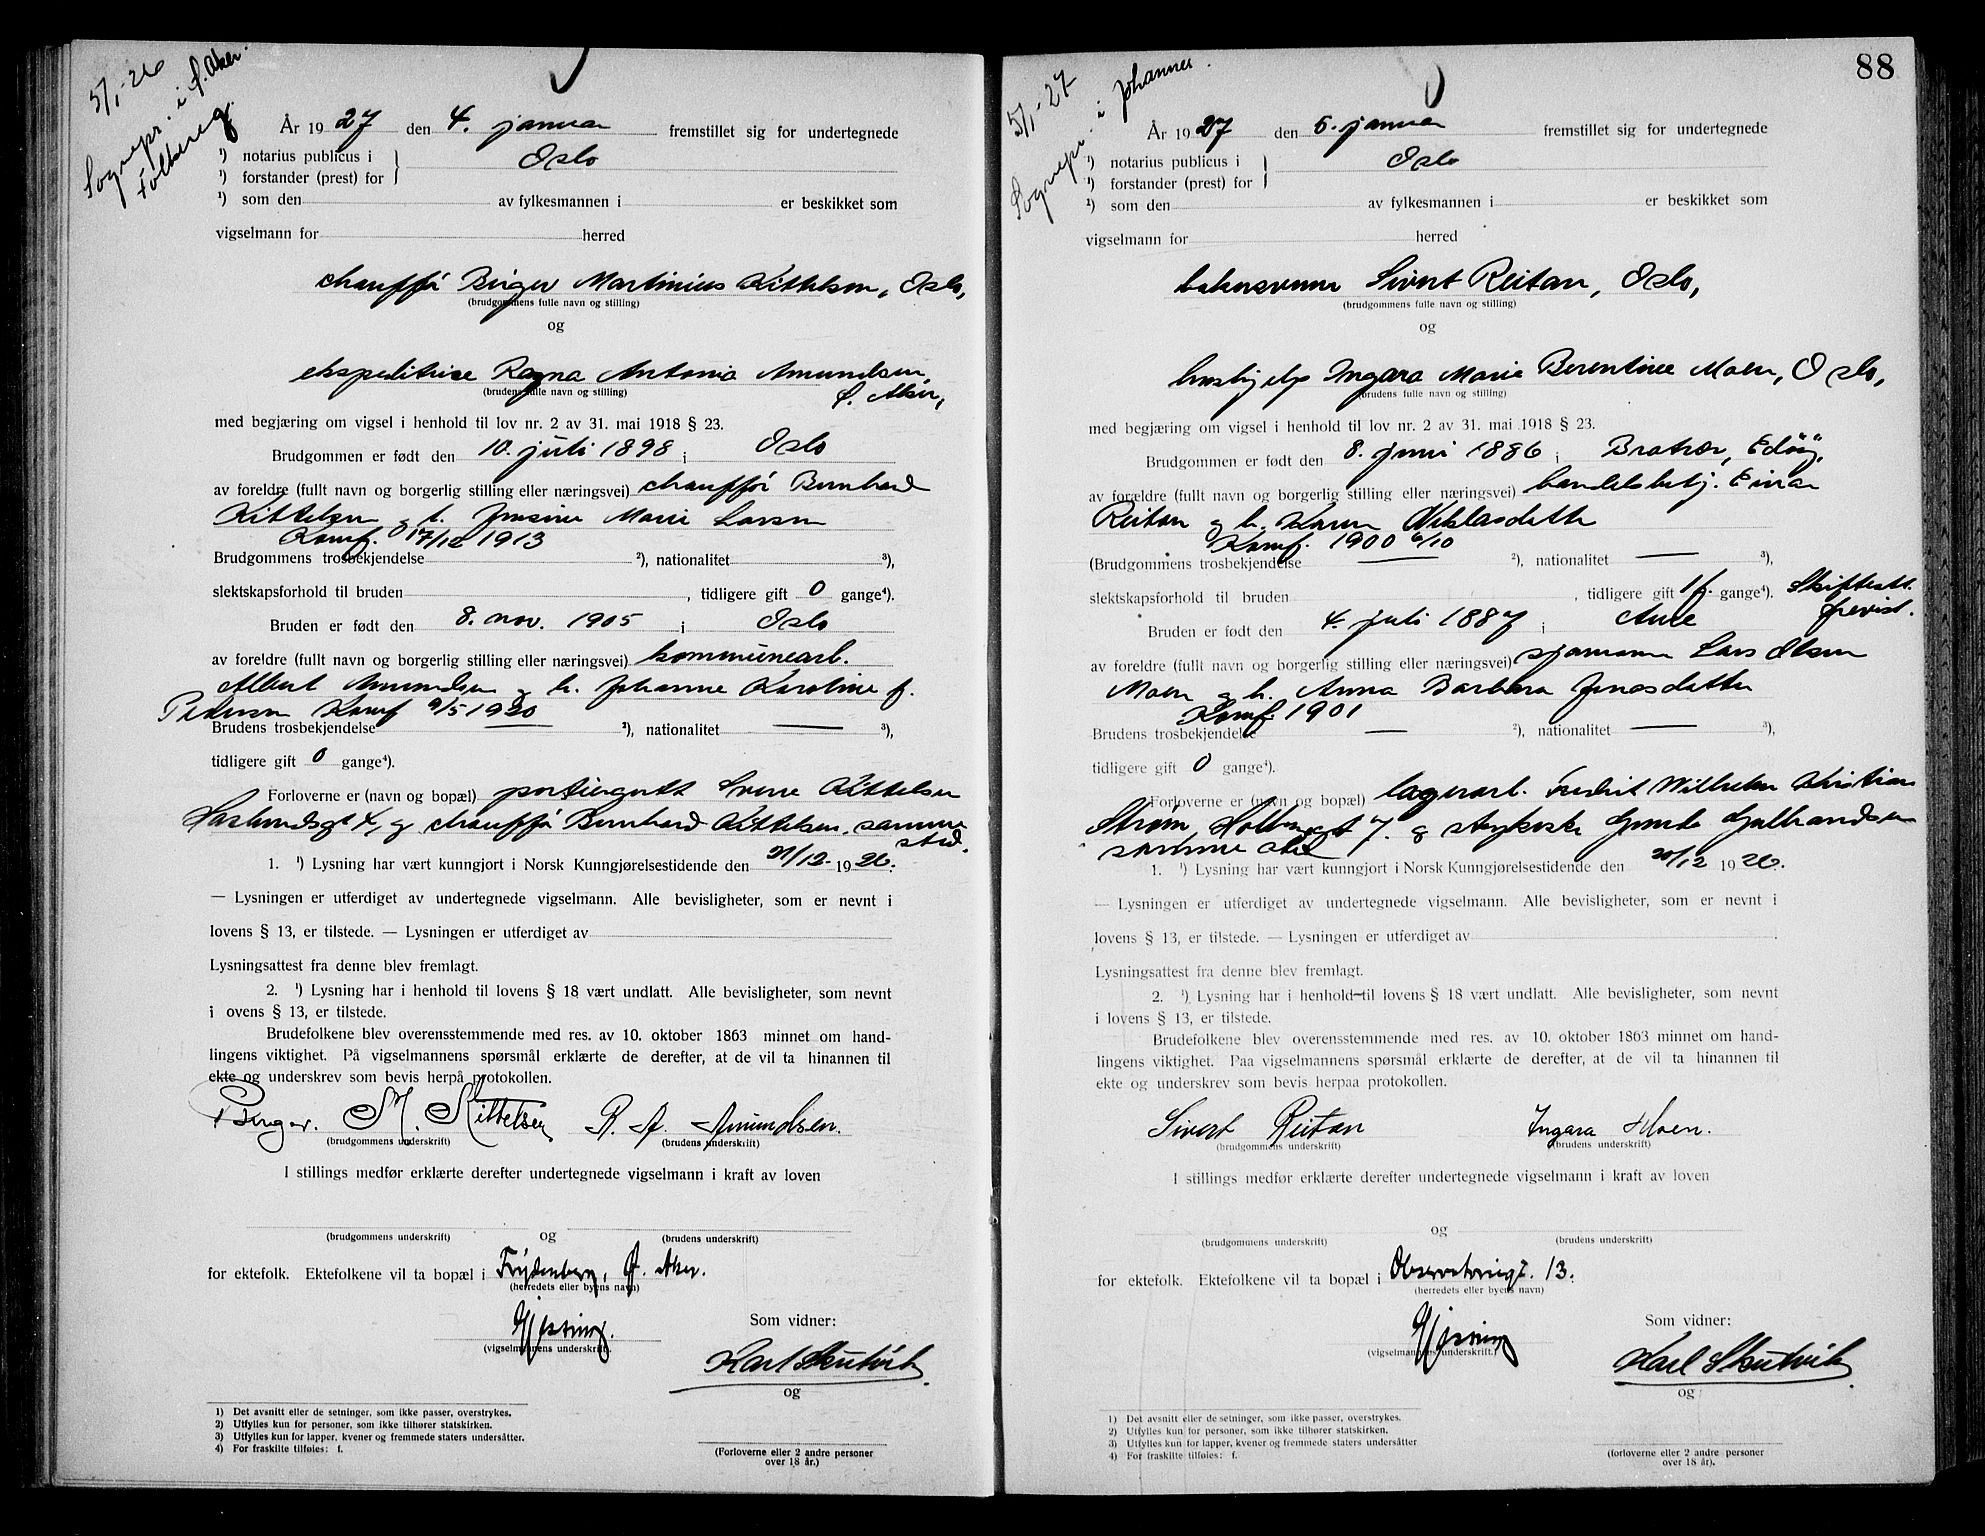 5/1-26
Sognepr. i Ø. Aker.
År 1927 den 4. januar fremstillet sig for undertegnede
¹) notarius publicus i } Oslo
¹) forstander (prest) for
¹) som den av fylkesmannen i er beskikket som
vigselmann for herred
chauffør Birger Martinius Kittelsen, Oslo,
(brudgommens fulle navn og stilling)
og
ekspeditrise Ragna Antonia Amundsen,
(brudens fulle navn og stilling)
Ø. Aker,
med begjæring om vigsel i henhold til lov nr. 2 av 31. mai 1918 § 23.
Brudgommen er født den 10. juli 1898 i Oslo
av foreldre (fullt navn og borgerlig stilling eller næringsvei) chauffør Bernhard
Kittelsen og h. Josine Marie Larsen
Konf. 17/12 1913
Brudgommens trosbekjendelse ²), nationalitet ³),
slektskapsforhold til bruden , tidligere gift 0 gange⁴).
Bruden er født den 8. nov. 1905 i Oslo
av foreldre (fullt navn og borgerlig stilling eller næringsvei) kommunearb.
Albert Amundsen og h. Johanne Karoline f.
Pedersen Konf 9/5 1920
Brudens trosbekjendelse ²), nationalitet — ³),
tidligere gift 0 gange⁴).
Forloverne er (navn og bopæl) portiergutt Sverre Kittelsen
4, og chauffør Bernhard Kittelsen, samme
sted.
1. ¹) Lysning har vært kunngjort i Norsk Kunngjørelsestidende den 21/12- 1926.
— Lysningen er utferdiget av undertegnede vigselmann. Alle bevisligheter, som er nevnt i
lovens § 13, er tilstede. — Lysningen er utferdiget av
Lysningsattest fra denne blev fremlagt.
2. ¹) Lysning har i henhold til lovens § 18 vært undlatt. Alle bevisligheter, som nevnt
i ovens § 13, er tilstede.
Brudefolkene blev overensstemmende med res. av 10. oktober 1863 minnet om hand-
lingens viktighet. På vigselmannens spørsmål erklærte de derefter, at de vil ta hinannen til
ekte og underskrev som bevis herpå protokollen.
Birger. M. Kittelsen R. A. Amundsen.
(brudgommens underskrift) (brudens underskrift)
I stillings medfør erklærte derefter undertegnede vigselmann i kraft av loven
og
(brudgommens underskrift) (brudens underskrift)
for ektefolk. Ektefolkene vil ta bopæl i Frydenberg, Ø. Aker.
(herredets eller byens navn)
Gjessing.
(vigselmannens underskrift.
Som vidner:
Karl Skutvik
og
(Forloverne eller 2 andre personer
over 18 år.)
1) Det avsnitt eller de setninger, som ikke passer, overstrykes.
2) Utfylles kun for personer, som ikke tilhører statskirken.
3) Utfylles kun for lapper, kvener og fremmede staters undersåtter.
4) For fraskilte tilføies: f.
88
5/1-27
Sognepr. i Johannes.
År 1927 den 5. januar fremstillet sig for undertegnede
¹) notarius publicus i } Oslo
¹) forstander (prest) for
¹) som den av fylkesmannen i er beskikket som
vigselmann for herred
bakersvenn Sivert Reitan, Oslo,
(brudgommens fulle navn og stilling)
og
hushjelp Ingara Marie Berentine Moen, Oslo,
(brudens fulle navn og stilling)
med begjæring om vigsel i henhold til lov nr. 2 av 31. mai 1918 § 23.
Brudgommen er født den 8. juni 1886 i Bratvær, Edøy,
av foreldre (fullt navn og borgerlig stilling eller næringsvei) handelsbetj. Einar
Reitan og h. Karen Niklasdatter
Konf. 1900 6/10
(Brudgommens trosbekjendelse — ²), nationalitet — ³),
slektskapsforhold til bruden , tidligere gift 1 f. gange⁴). Skifteatt.
Bruden er født den 4. juli 1887 i Aure
forevist.
av foreldre (fullt navn og borgerlig stilling eller næringsvei) sjømann Lars Olsen
Moen og h. Anna Barbara Jonasdatter
Konf. 1901
Brudens trosbekjendelse — ²), nationalitet — ³),
tidligere gift 0 gange⁴).
Forloverne er (navn og bopæl) lagerarb. Fredrik Wilhelm Kristian
Strøm, 7. og
samme sted
1. ¹) Lysning har vært kunngjort i Norsk Kunngjørelsestidende den 20/12 1926.
— Lysningen er utferdiget av undertegnede vigselmann. Alle bevisligheter, som er nevnt i
lovens § 13, er tilstede. — Lysningen er utferdiget av
Lysningsattest fra denne blev fremlagt.
2. ¹) Lysning har i henhold til lovens § 18 vært undlatt. Alle bevisligheter, som nevnt
i lovens § 13, er tilstede.
Brudefolkene blev overensstemmende med res. av 10. oktober 1863 minnet om hand-
lingens viktighet. Paa vigselmannens spørsmål erklærte de derefter, at de vil ta hinannen til
ekte og underskrev som bevis herpaa protokollen.
Sivert Reitan Ingara Moen.
(brudgommens underskrift) (brudens underskrift)
I stillings medfør erklærte derefter undertegnede vigselmann i kraft av loven
og
(brudgommens underskrift) (brudens underskrift)
for ektefolk. Ektefolkene vil ta bopæl i Observatoriegt. 13.
(herredets eller byens navn)
Gjessing
(vigselmannens underskrift.)
Som vidner:
Karl Skutvik
og
(forloverne eller 2 andre personer
over 18 år).
1) Det avsnitt eller de setninger, som ikke passer, overstrykes.
2) Utfylles kun for personer, som ikke tilhører statskirken.
3) Utfylles kun for lapper, kvener og fremmede staters undersåtter
4) For fraskilte tilføies: f.